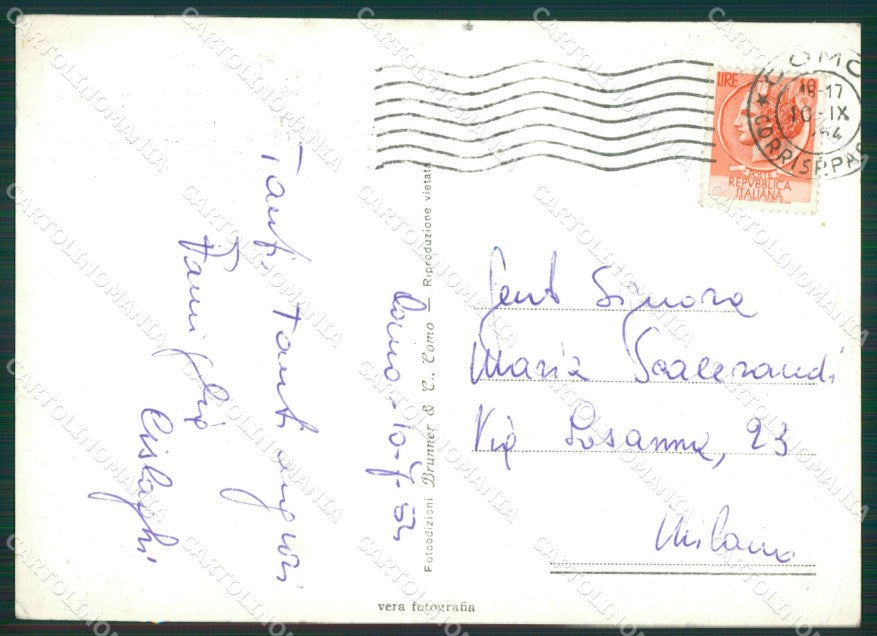 Tanti Tanti auguri
Famiglia
Cislaghi
Como - 10-9-54
Fotoedizioni Brunner & C., Como — Riproduzione vietata
vera fotografia
COMO
18-17
10-IX
54
CORRISP. PAC
LIRE 10
POSTE
REPVBBLICA
ITALIANA
Gent Signora
Maria Scacerandi
Via Losanna, 23
Milano
CARTOLINOMANIA